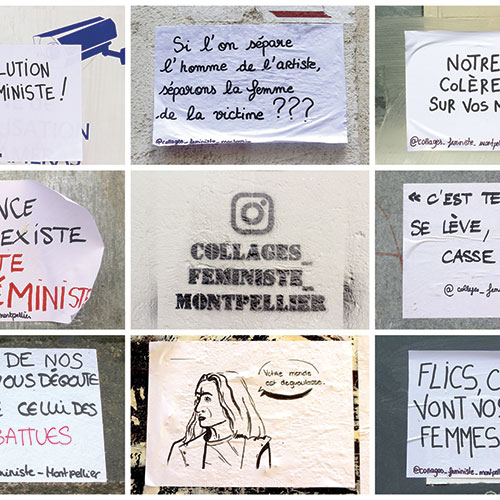 LUTION
MINISTE !
Si l'on sépare
l'homme de l'artiste,
séparons la femme
de la victime ???
@collages_feministe_montpellier
NOTRE
COLÈRE
SUR VOS M
@collages_feministe_montpel
NCE
EXISTE
TE
ÉMINISTE
montpellier
COLLAGES_
FEMINISTE_
MONTPELLIER
« C'EST TE
SE LÈVE,
CASSE
@collages_femi
DE NOS
VOUS DÉGOUTE
E CELUI DES
BATTUES
ministe_Montpellier
Votre monde
est dégueulasse.
FLICS, C
VONT VOS
FEMMES
@collages_feministe_montpell